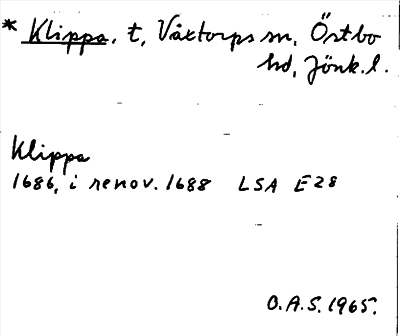 * Klippa. t. Våxtorps sn, Östbo
hd, Jönk. l.
Klippa
1686, i renov. 1688 LSA E28
O.A.S. 1965.